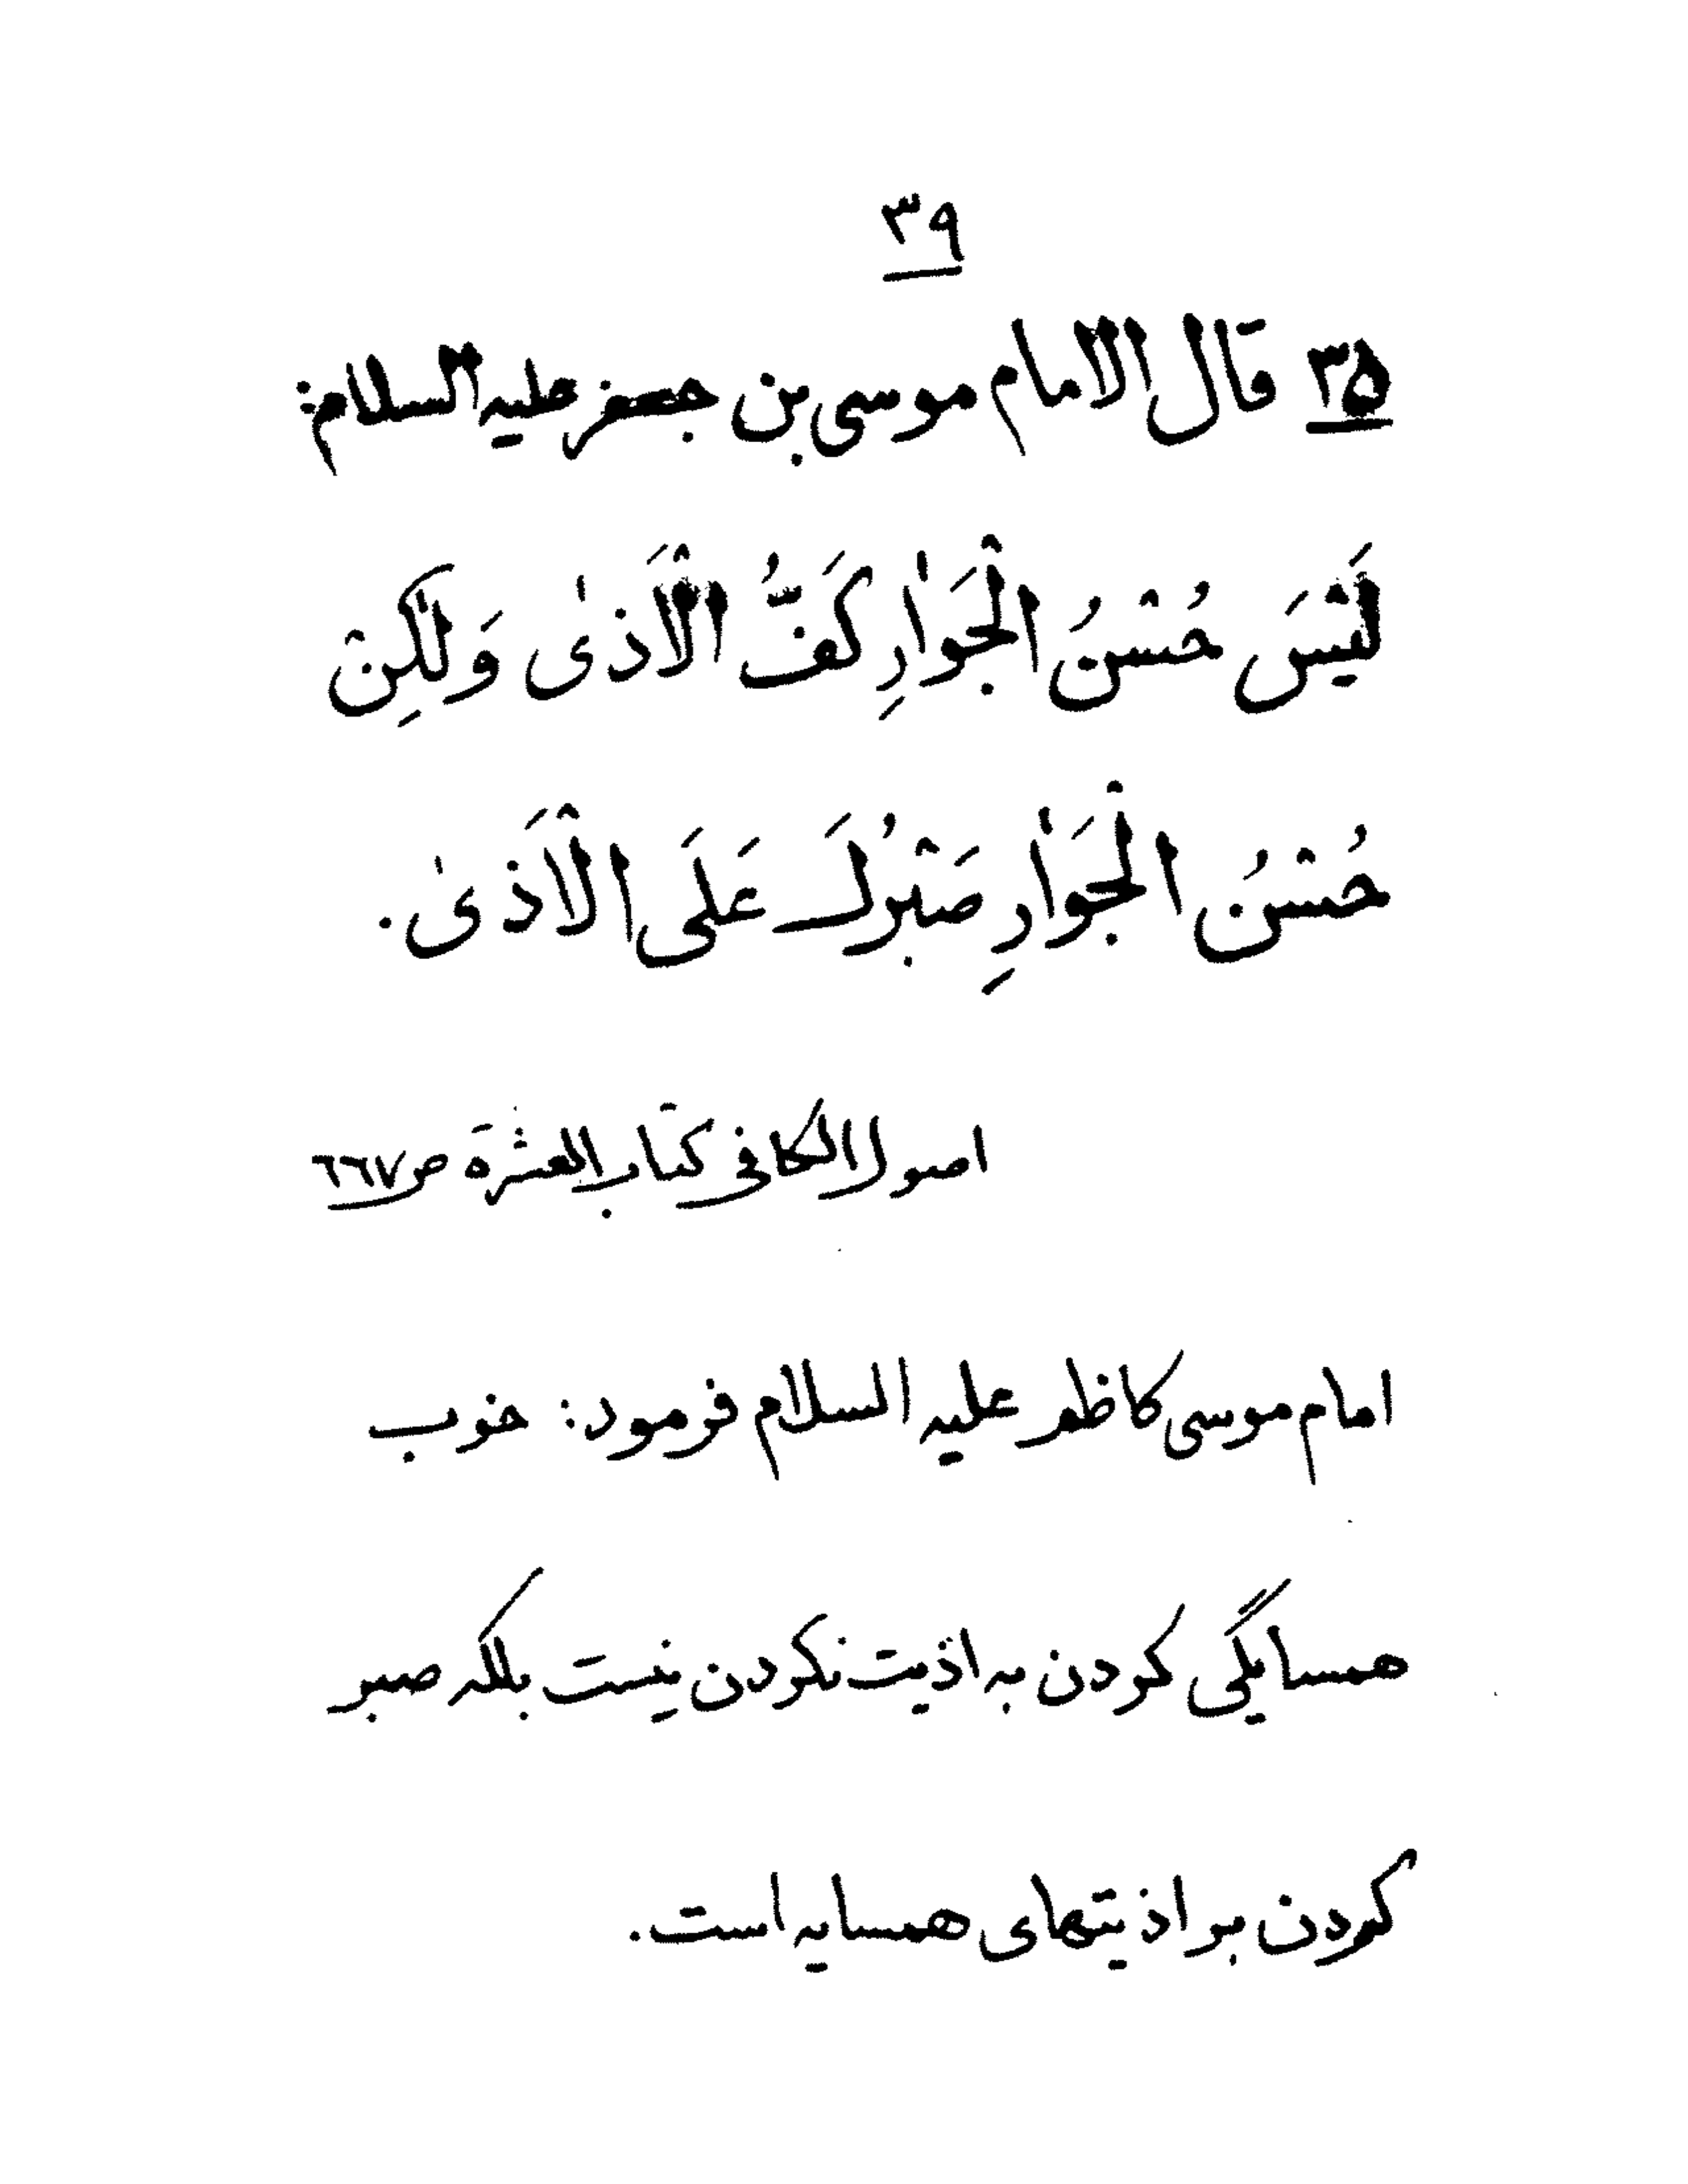 ۳۹
۳۵ قال الامام موسی بن جعفر علیه السلام:
لَیْسَ حُسْنُ الْجَوٰارِ کَفُّ الْاَذىٰ وَلٰکِنْ
حُسْنُ الْجَوٰارِ صَبْرُکَ عَلَی الْاَذىٰ.
اصول الکافی کتاب العشرة ص ٦٦٧
امام موسی کاظم علیه السلام فرمود: خوب
همسایگی کردن به اذیت نکردن نیست بلکه صبر
کردن بر اذیتهای همسایه است.